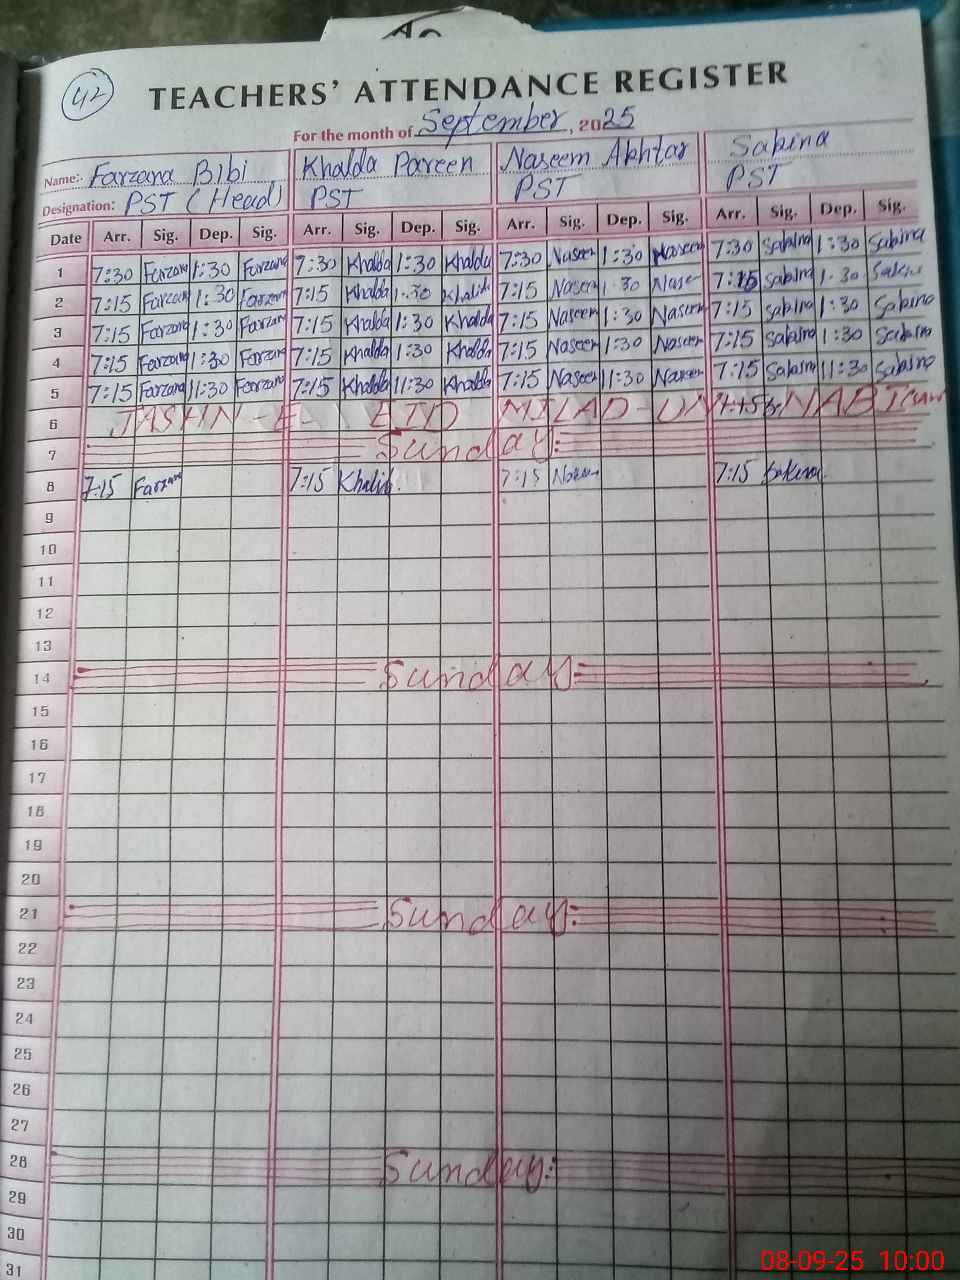 42
TEACHERS' ATTENDANCE REGISTER
For the month of September, 2025
Name:- Farzana Bibi Khalda Parveen Naseem Akhtar Sakina
Designation: PST (Head) PST PST PST
Date Arr. Sig. Dep. Sig. Arr. Sig. Dep. Sig. Arr. Sig. Dep. Sig. Arr. Sig. Dep. Sig.
1 7:30 Farzana 1:30 Farzana 7:30 Khalda 1:30 Khalda 7:30 Naseem 1:30 Naseem 7:30 Sakina 1:30 Sakina
2 7:15 Farzana 1:30 Farzana 7:15 Khalda 1:30 Khalda 7:15 Naseem 1:30 Nase 7:15 Sakina 1:30 Sakina
3 7:15 Farzana 1:30 Farzana 7:15 Khalda 1:30 Khalda 7:15 Naseem 1:30 Naseem 7:15 Sakina 1:30 Sakina
4 7:15 Farzana 1:30 Farzana 7:15 Khalda 1:30 Khalda 7:15 Naseem 1:30 Naseem 7:15 Sakina 1:30 Sakina
5 7:15 Farzana 11:30 Farzana 7:15 Khalda 11:30 Khalda 7:15 Naseem 11:30 Naseem 7:15 Sakina 11:30 Sakina
6 JASHN-E- EID MILAD-UN-NABI
7 Sunday:
8 7:15 Farzana 7:15 Khalda 7:15 Naseem 7:15 Sakina
9
10
11
12
13
14 Sunday:
15
16
17
18
19
20
21 Sunday:
22
23
24
25
26
27
28 Sunday:
29
30
31
08-09-25 10:00